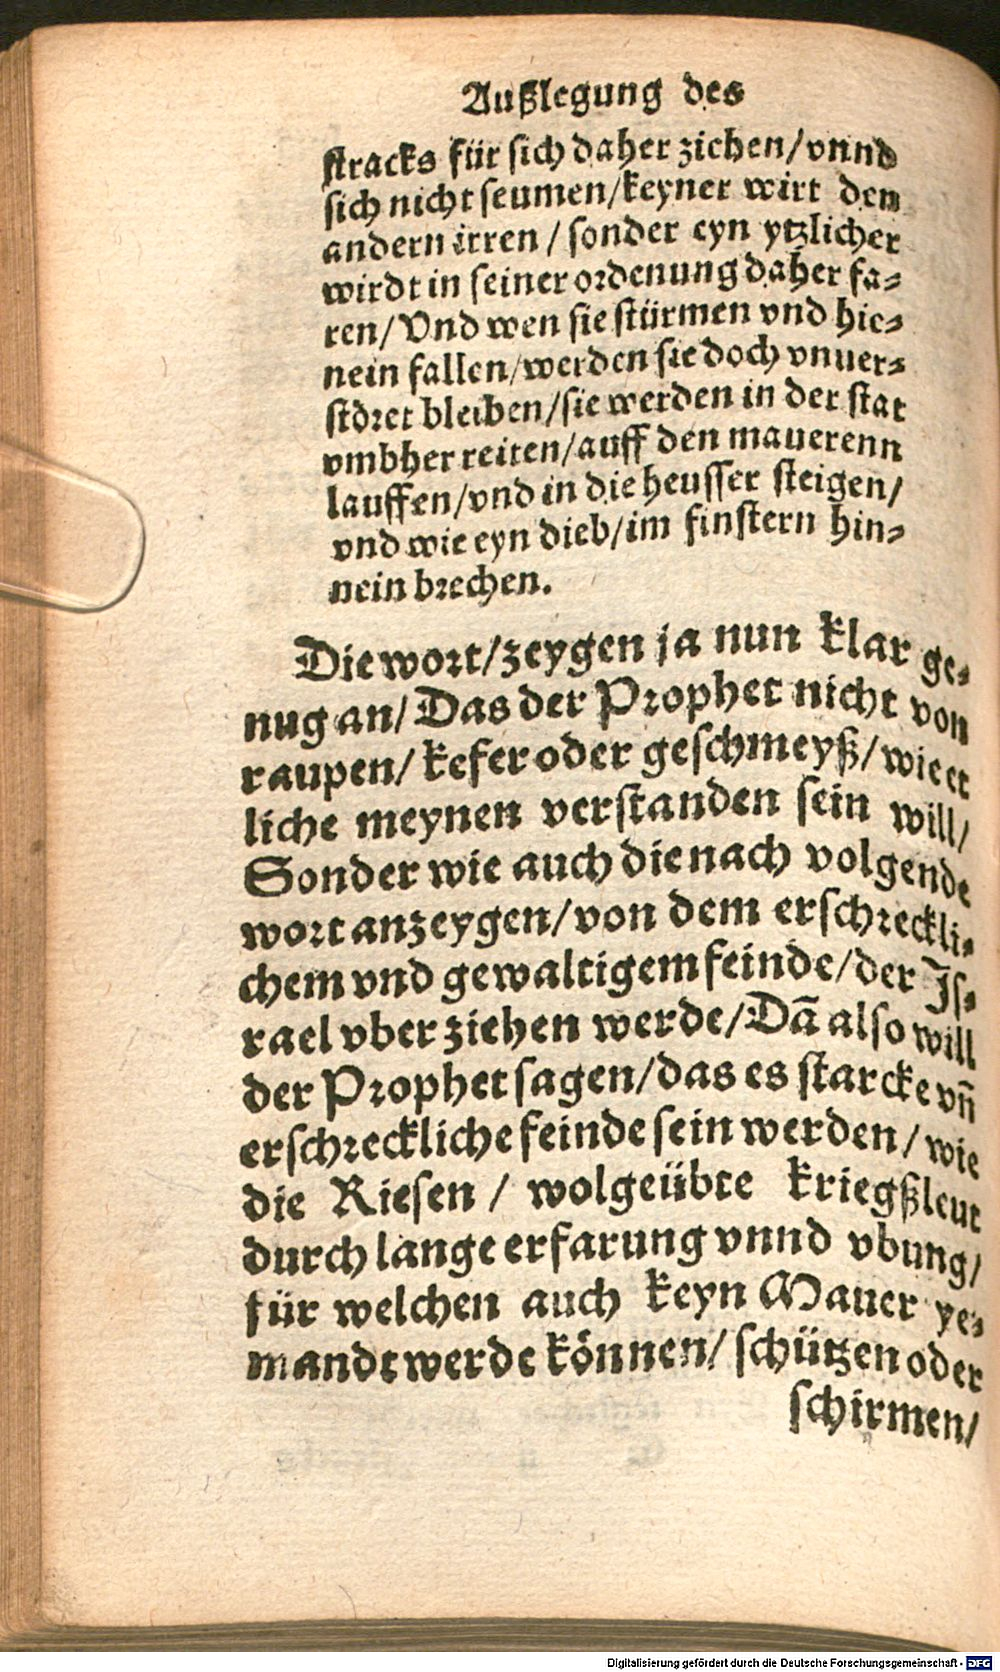 Außlegung des
stracks für sich daher ziehen/vnnd
sich nicht seumen/keyner wirt den
andern irren / sonder eyn ytzlicher
wirdt in seiner ordenung daher fa⸗
ren/Vnd wen sie stürmen vnd hie⸗
nein fallen/werden sie doch vnuer⸗
störet bleiben/sie werden in der stat
vmbher reiten/auff den mauerenn
lauffen/vnd in die heusser steigen/
vnd wie eyn dieb/im finstern hin⸗
nein brechen.
Die wort/zeygen ja nun klar ge⸗
nug an/Das der Prophet nicht von
raupen/kefer oder geschmeyß/wie et
liche meynen verstanden sein will/
Sonder wie auch die nach volgende
wort anzeygen/von dem erschreckli⸗
chem vnd gewaltigem feinde/der Js⸗
rael vber ziehen werde/Dā also will
der Prophet sagen/das es starcke vñ
erschreckliche feinde sein werden/wie
die Riesen / wolgeübte kriegßleut
durch lange erfarung vnnd vbung/
für welchen auch keyn Mauer ye⸗
mandt werde können/schützen oder
schirmen/
Digitalisierung gefördert durch die Deutsche Forschungsgemeinschaft - DFG